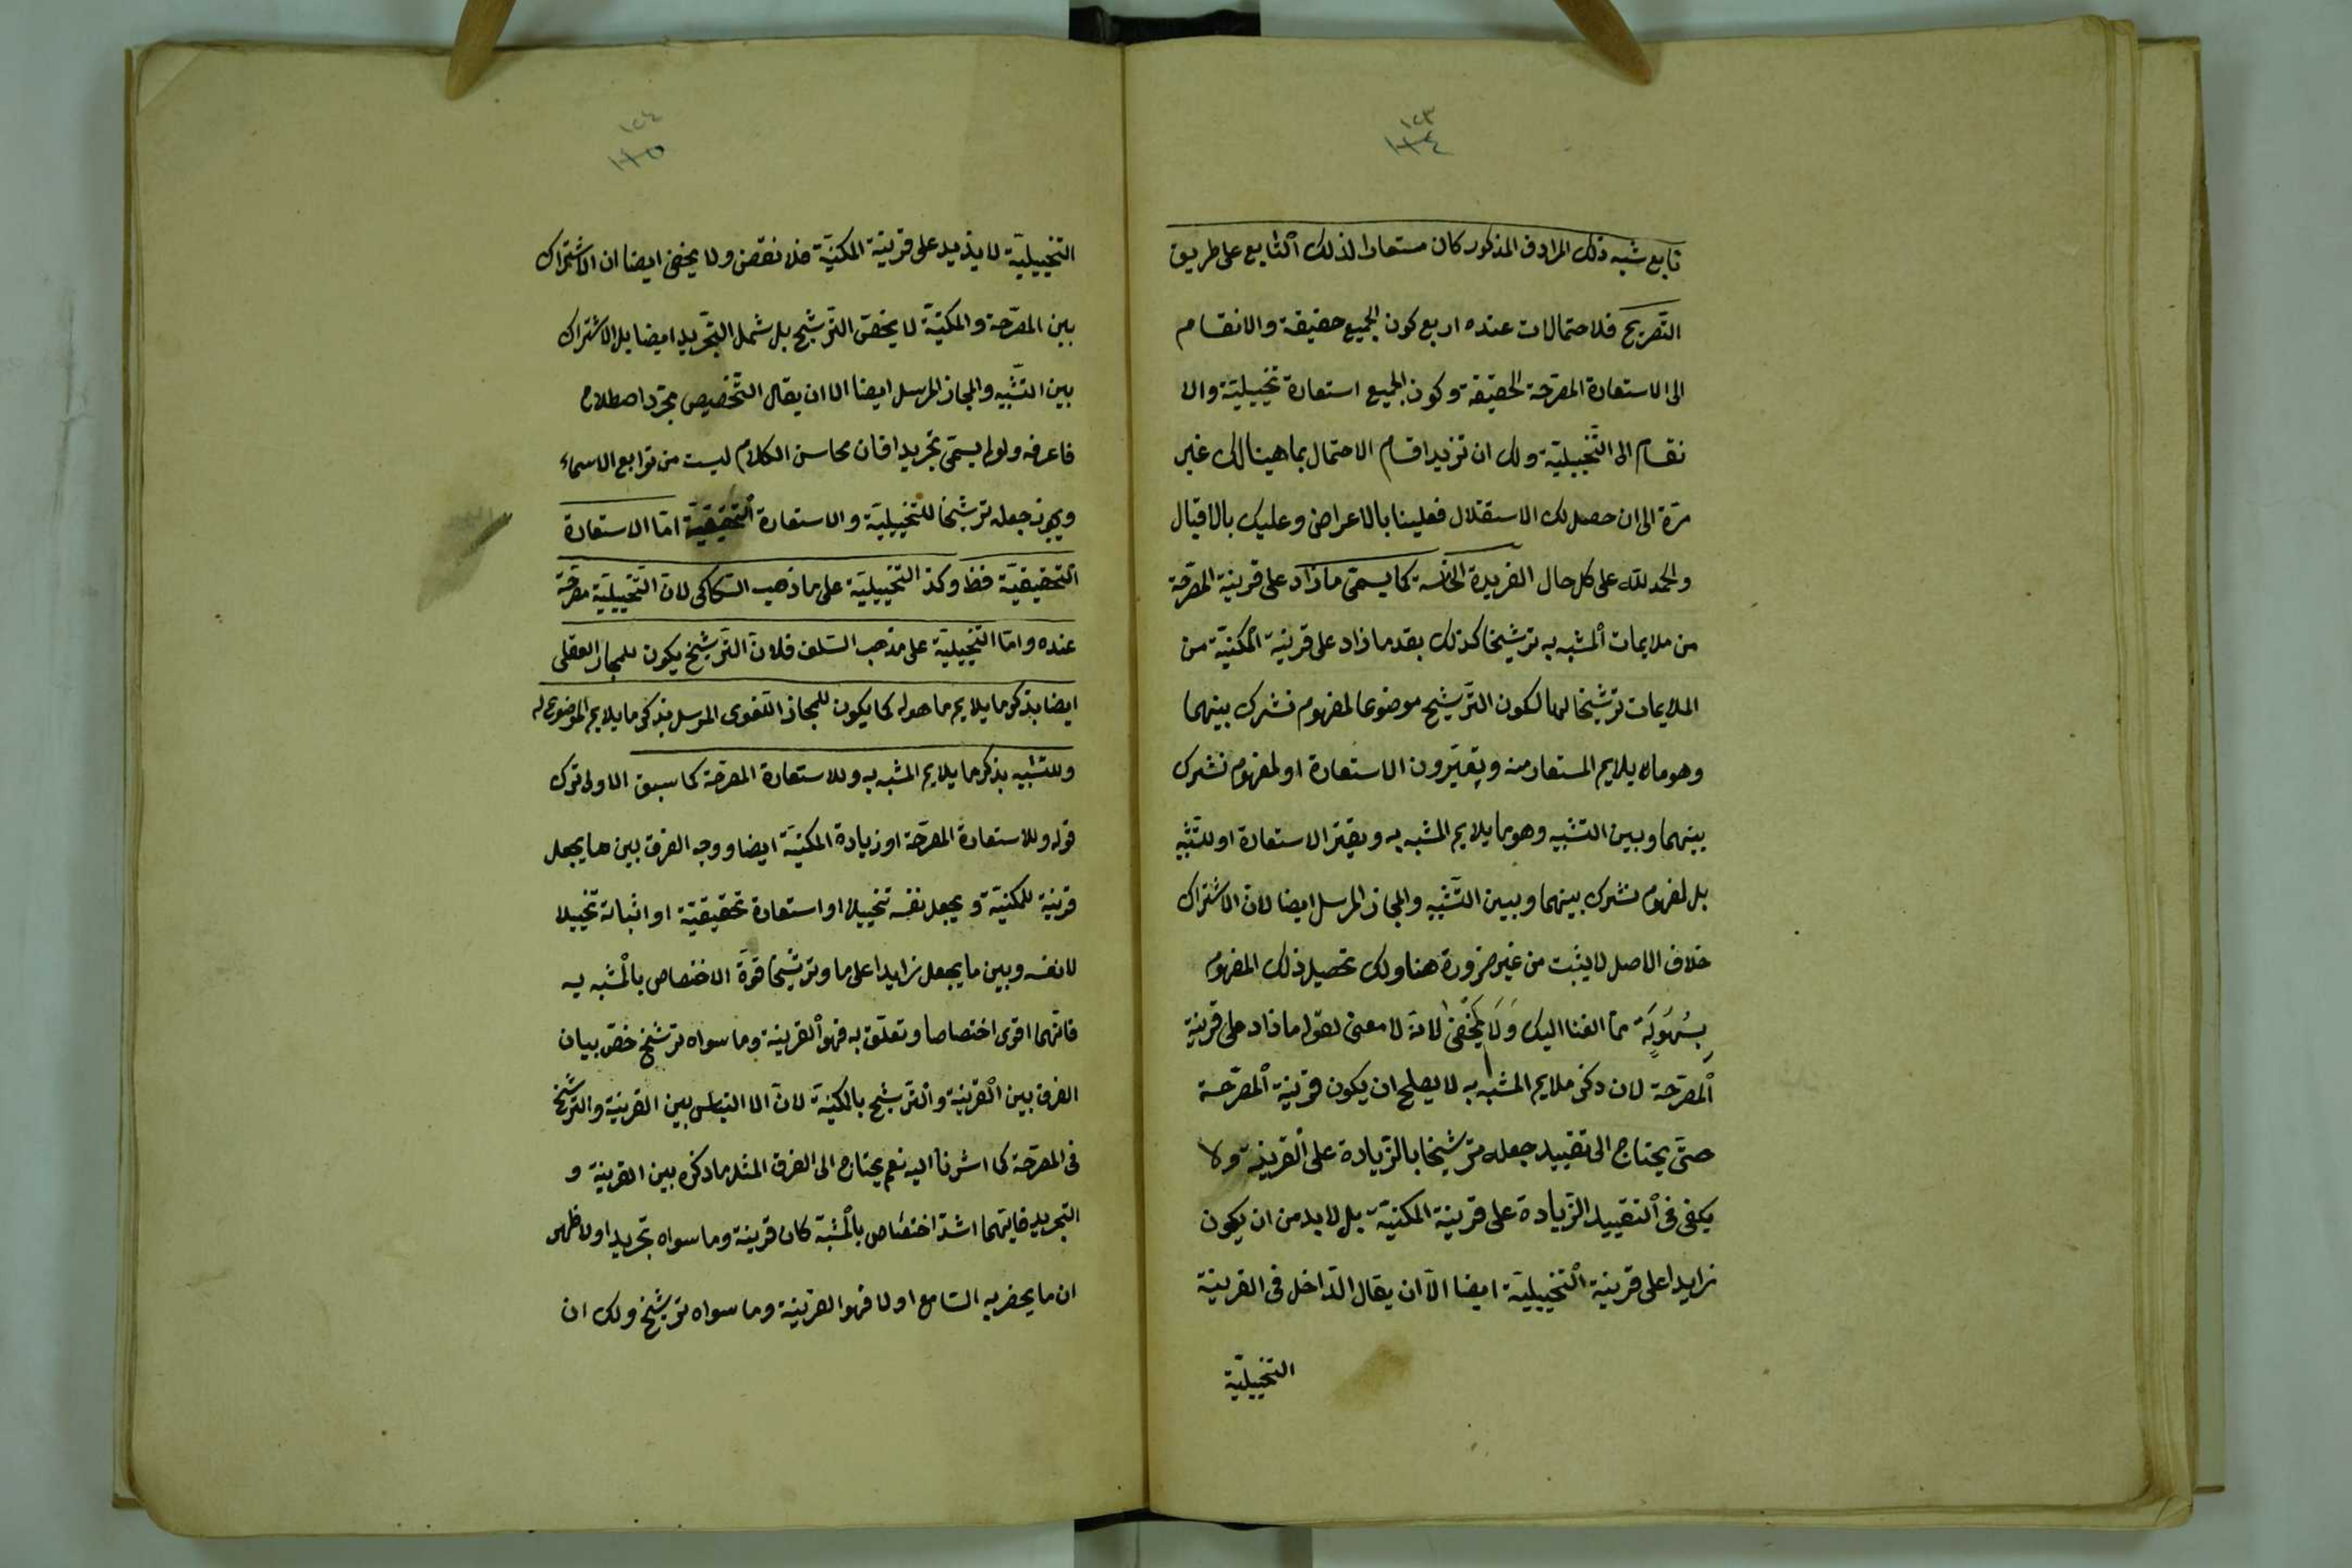 ١٢٣
١٢٤
تابع شبه ذلك المرادف المذكور كان مستعارا لذلك التابع على طريق
التصريح فلاحتمالات عنده اربع كون الجميع حقيقة والانقسام
الى الاستعارة المصرحة الحقيقة وكون الجميع استعارة تخييلية والا
نقسام الى التخييلية ولك ان تزيد اقسام الاحتمال بما هينا لك غير
مرة الى ان حصل لك الاستقلال فعلينا بالاعراض وعليك بالاقبال
والحمد لله على كل حال الفريدة الخامسة كما يسمى ما زاد على قرينة المصرحة
من ملايمات المشبه به ترشيحا كذلك يعد ما زاد على قرينة المكنية من
الملايمات ترشيحا لها لكون الترشيح موضوعا لمفهوم مشترك بينهما
وهو ما يلايم المستعار منه ويقترون الاستعارة او لمفهوم مشترك
بينهما وبين التشبيه وهو ما يلايم المشبه به ويقترن الاستعارة او للتشبيه
بل لمفهوم مشترك بينهما وبين التشبيه والمجاز المرسل ايضا لان الاشتراك
خلاف الاصل لا يثبت من غير ضرورة هنا ولك تحصيل ذلك المفهوم
بسهولة مما القنا اليك ولا يخفى لانه لا معنى لقوله ما زاد على قرينة
المصرحة لان ذكر ملايم المشبه به لا يصلح ان يكون قرينة المصرحة
حتى يحتاج الى تقييد جعله ترشيحا بالزيادة على القرينة ولا
يكفى فى التقييد الزيادة على قرينة المكنية بل لا بد من ان يكون
زايدا على قرينة التخييلية ايضا الا ان يقال الداخل فى القرينة
التخييلية
١٢٤
١٢٥
التخييلية لا يزيد على قرينة المكنية فلا نقض ولا يخفى ايضا ان الاشتراك
بين المصرحة والمكنية لا يخص الترشيح بل شمل التجريد ايضا بل الاشتراك
بين التشبيه والمجاز المرسل ايضا الا ان يقال التخصيص مجرد اصطلاح
فاعرفه ولو لم يسمى تجريدا فان محاسن الكلام ليست من توابع الاسماء
ويجوز جعله ترشيحا للتخييلية والاستعارة التحقيقية اما الاستعارة
التحقيقية فظ وكذا التخييلية على ما ذهب السكاكى لان التخييلية مصرحة
عنده واما التخييلية على مذهب السلف فلان الترشيح يكون للمجاز العقلى
ايضا بذكر ما يلايم ما هو له كما يكون للمجاز اللغوى المرسل بذكر ما يلايم الموضوع له
وللتشبيه بذكر ما يلايم المشبه به وللاستعارة المصرحة كما سبق الاولى ترك
قوله وللاستعارة المصرحة او زيادة المكنية ايضا ووجه الفرق بين ما يجعل
قرينة للمكنية ويجعل نفسه تخييلا او استعارة تحقيقية او اثباته تخييلا
لا نفسه وبين ما يجعل زايدا عليها وترشيحا قوة الاختصاص بالمشبه به
فايهما اقوى اختصاصا وتعلق به فهو القرينة وما سواه ترشيح خص بيان
الفرق بين القرينة والترشيح بالمكنية لان الا التباس بين القرينة والترشيح
فى المصرحة كما اشرنا اليه نعم يحتاج الى الفرق المثل ما ذكره بين القرينة و
التجريد فايهما اشد اختصاص بالمشبه كان قرينة وما سواه تجريدا ولا ظهر
ان ما يحضر به السامع اولا فهو القرينة وما سواه ترشيح ولك ان